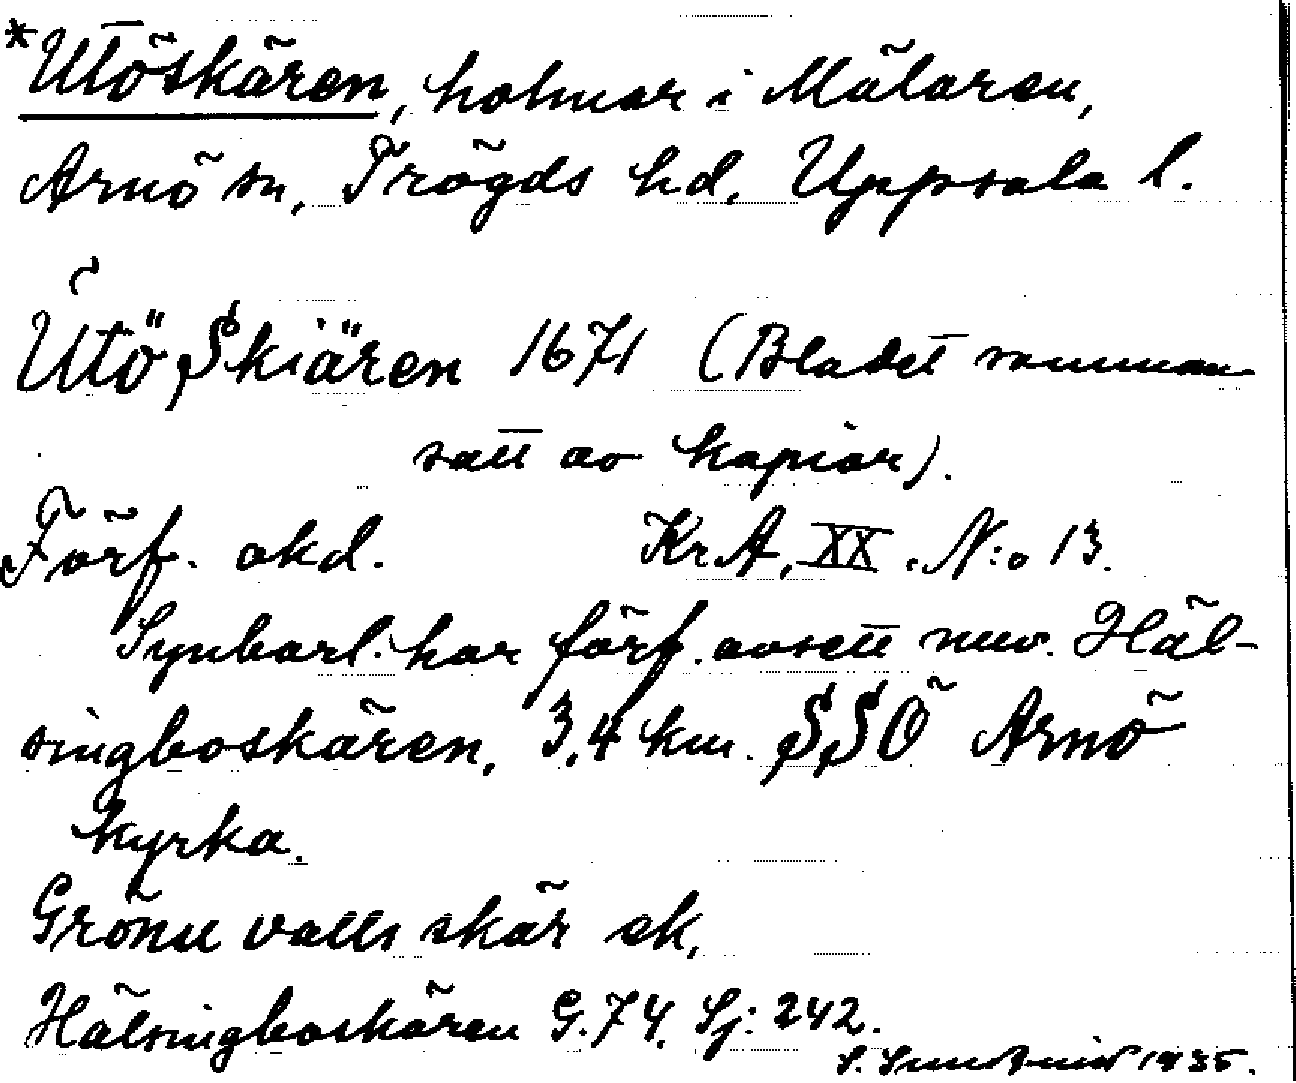 *Utöskären, holmar i Mälaren,
Arnö sn, Trögds hd, Uppsala l.
Utö Skiären 1671 (Bladet samman
satt av kopior).
Förf. okd. KrA, XX. N:o 13.
Synbarl. har förf. avsett nuv. Häl-
singboskären, 3,4 km. SSÖ Arnö
kyrka.
skär ek,
Hälsingboskären G. 74. Sj: 242.
1935.